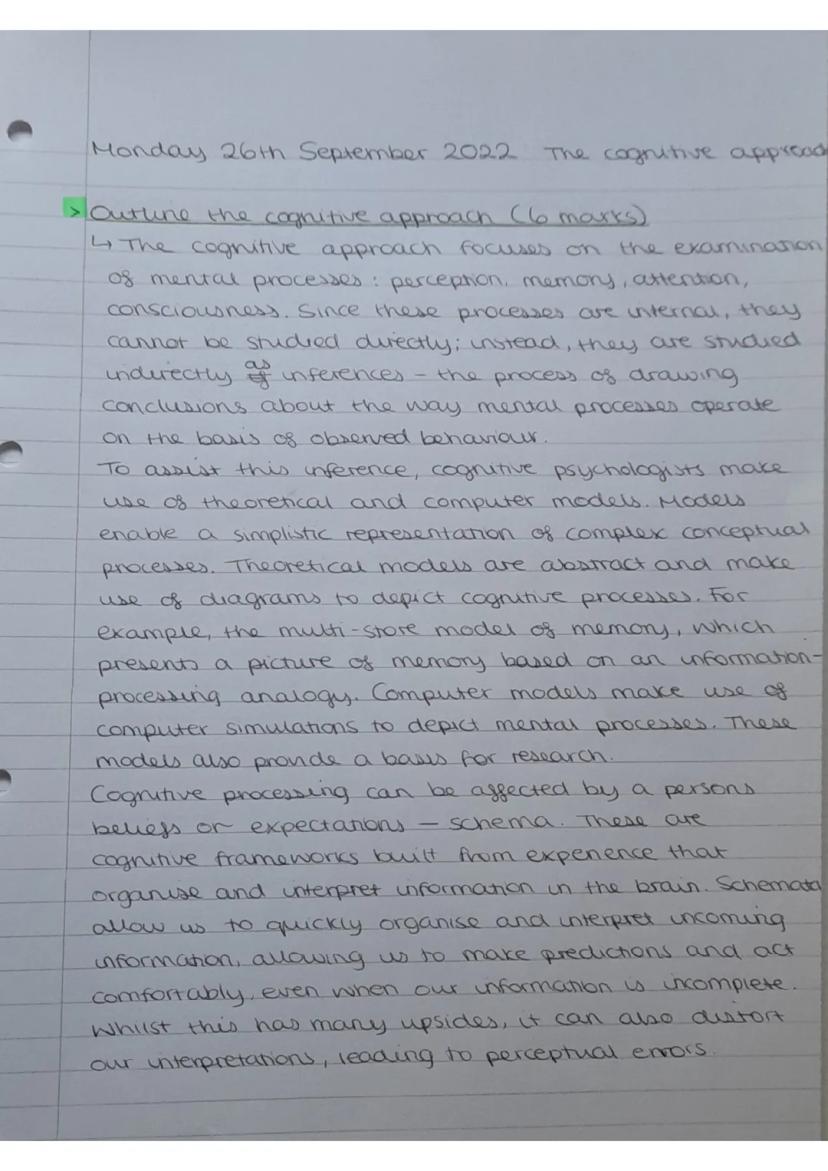 Monday 26th September 2022 The cognitive approac
> Outline the cognitive approach (6 marks)
↳ The cognitive approach focuses on the examination
of mental processes: perception, memory, attention,
consciousness. Since these processes are internal, they
cannot be studied directly; instead, they are studied
indirectly as inferences – the process of drawing
conclusions about the way mental processes operate
on the basis of observed behaviour.
To assist this inference, cognitive psychologists make
use of theoretical and computer models. Models
enable a simplistic representation of complex conceptual
processes. Theoretical models are abstract and make
use of diagrams to depict cognitive processes. For
example, the multi-store model of memory, which
presents a picture of memory based on an information-
processing analogy. Computer models make use of
computer simulations to depict mental processes. These
models also provide a basis for research.
Cognitive processing can be affected by a persons
beliefs or expectations – schema. These are
cognitive frameworks built from experience that
organise and interpret information in the brain. Schemata
allow us to quickly organise and interpret incoming
information, allowing us to make predictions and act
comfortably, even when our information is incomplete.
Whilst this has many upsides, it can also distort
our interpretations, leading to perceptual errors.